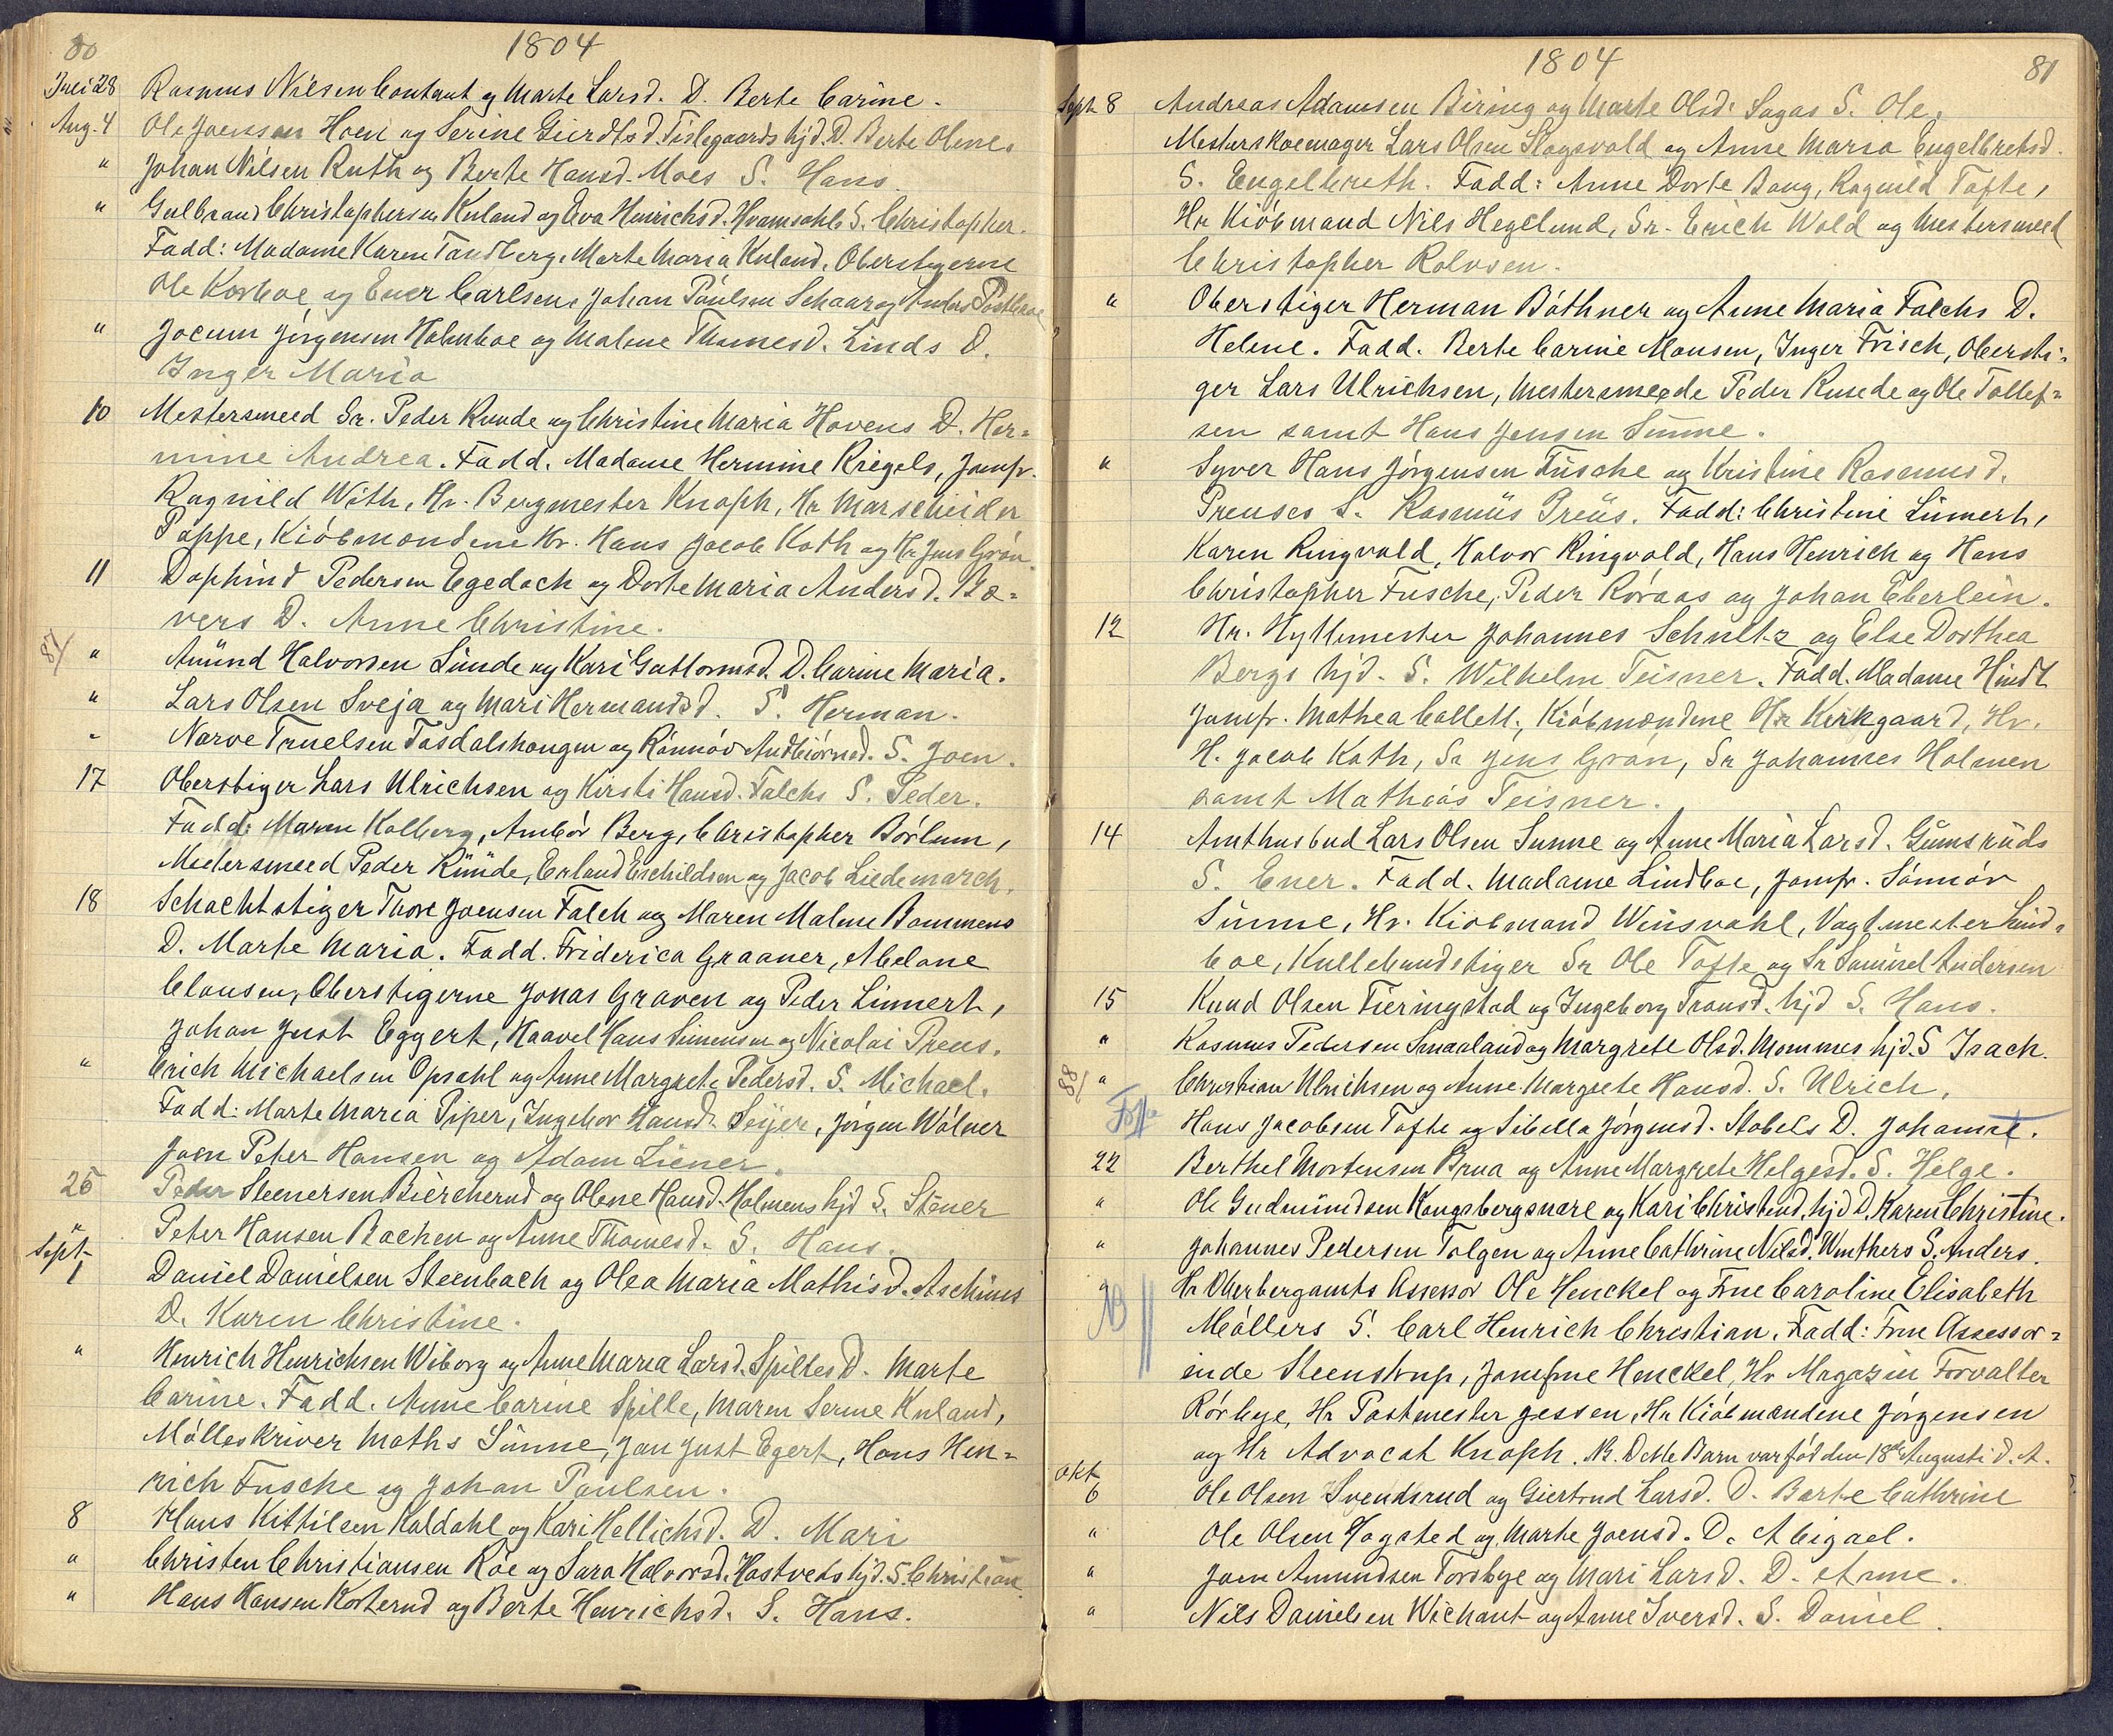 80
1804
Juli 28 Rasmus Nilsen Contant og Marte Larsd. D. Berte Carine.
Aug. 4 Ole Joensen Hoen og Serine Gierdtsd. Tislegaards hjd. D. Berte Olene.
" Johan Nilsen Ruth og Berte Hansd. Moes S. Hans.
" Gulbrand Christophersen Knland og Eva Henrichsd. Hvamsahls S. Christopher.
Fadd: Madame Karen Tandberg, Marte Maria Knland, Oberstigerne
Ole Korboe og Ener Carlsen, Johan Paulsen Schaar og Anders Postboe
" Jocum Jörgensen Holmboe og Malene Thomesd. Linds D.
Inger Maria
10 Mestersmeed Sr. Peder Runde og Christine Maria Hovens D. Her=
mine Andrea. Fadd. Madame Hermine Kriegels, Jomfr.
Ragnild With, Hr. Bergmester Knoph, Hr Marscheider
Poppe, Kiöbmændene Hr. Hans Jacob Koth og Hr Jens Grön.
11 Dophind Pedersen Egedach og Dorte Maria Andersd. Bæ=
vers D. Anne Christine.
84/ " Amünd Halvorsen Lünde og Kari Guttormsd. D. Carine Maria.
" Lars Olsen Sveja og Mari Hermandsd. S. Herman.
" Narve Truelsen Tosdalshougen og Rönnöv Audbiörnsd. S. Joen.
17 Oberstiger Lars Ulrichsen og Kirsti Hansd. Falchs S. Peder.
Fadd: Maren Kolberg, Ambör Berg, Christopher Börlum,
Mestersmeed Peder Ründe, Erland Eschildsen og Jacob Liedemarch.
18 Schachtstiger Thore Joensen Falch og Maren Malene Bommens
D. Marte Maria. Fadd. Friderica Graaner, Abelone
Clausen, Oberstigerne Jonas Graven og Peder Linnert,
Johan Just Eggert, Haavel Hans Simensen og Nicolai Preus.
" Erich Michaelsen Opsahl og Anne Margrete Pedersd. S. Michael.
Fadd: Marte Maria Piper, Ingebor Hansd. Seijer, Jörgen Wölner
Joen Peter Hansen og Adam Ziener.
25 Peder Steenersen Biercherud og Olene Hansd. Holmens hjd S. Stener
" Peter Hansen Bachen og Anne Thomesd. S. Hans.
Sept 1 Daniel Danielsen Steenbach og Olea Maria Mathisd. Aschims
D. Karen Christine.
" Henrich Henrichsen Wiborg og Anne Maria Larsd. Spilles D. Marte
Carine. Fadd. Anne Carine Spille, Maren Serine Knland,
Mölleskriver Maths Sünne, Jan Just Egert, Hans Hen=
rich Fusche og Johan Paulsen.
8 Hans Kittilsen Koldahl og Kari Hellichsd. D. Mari
" Christen Christiansen Röe og Sara Halvorsd. Hostveds hjd. S. Christian
" Hans Hansen Korterud og Berte Henrichsd. S. Hans.
1804
81
Sept 8 Andreas Adamsen Biring og Marte Olsd. Sagas S. Ole.
Mesterskoemager Lars Olsen Skogsvold og Anne Maria Engelbretsd.
S. Engelbreth. Fadd: Anne Dorte Bang, Ragnild Tofte,
Hr Kiöbmand Nils Hegelund, Sr. Erich Wold og Mestersmeed
Christopher Rolvsen.
" Oberstiger Herman Böthner og Anne Maria Falchs D.
Helene. Fadd. Berte Carine Monsen, Inger Frisch, Obersti=
ger Lars Ulrichsen, Mestersmeede Peder Runde og Ole Tollef=
sen samt Hans Jensen Sünne.
" Syver Hans Jörgensen Füsche og Kristine Rasmusd.
Preuses S. Rasmüs Preüs. Fadd: Christine Linnert,
Karen Ringvold, Halvor Ringvold, Hans Henrich og Hans
Christopher Fusche, Peder Röraas og Johan Eberlein.
12 Hr. Hyttemester Johannes Schultz og Else Dorthea
Bergs hjd. S. Wilhelm Teisner. Fadd. Madame Hindt
Jomfr. Mathea Collett, Kiöbmændene Hr Kirkgaard, Hr.
H. Jacob Koth, Sr Jens Grön, Sr Johannes Holmen
samt Mathias Teisner.
14 Amthusbud Lars Olsen Sunne og Anne Maria Larsd. Gumsrüds
S. Ener. Fadd. Madame Lindboe, Jomfr. Sönnöv
Sünne, Hr. Kiöbmand Winsvahl, Vagtmester Lind=
boe, Kullebundstiger Sr Ole Tofte og Sr Samuel Andersen
15 Knud Olsen Fieringstad og Ingeborg Transd. hjd S. Hans.
" Rasmus Pedersen Smaaland og Margrete Olsd. Mommes hjd. S Isach.
88/ " Christian Ulrichsen og Anne Margrete Hansd. S. Ulrich.
Tofte Hans Jacobsen Tofte og Sibella Jörgensd. Stabels D. Johanne.
22 Berthel Mortensen Brua og Anne Margrete Helgesd. S. Helge.
" Ole Gudmündsen Kongsbergsnare og Kari Christend. hjd D. Karen Christine.
" Johannes Pedersen Tolgen og Anne Cathrine Nilsd. Winthers S. Anders.
" NB Hr Oberbergamts Assessor Ole Henckel og Frue Caroline Elisabeth
Möllers S. Carl Henrich Christian. Fadd: Frue Assessor=
inde Steenstrup, Jomfrue Henckel, Hr Magazin Forvalter
Rörbye, Hr Postmester Jessen, Hr Kiöbmændene Jörgensen
og Hr Advocat Knoph. NB. Dette Barn var föd den 18de Augusti d. A.
Okt 6 Ole Olsen Svendsrud og Giertrud Larsd. D. Berte Cathrine
" Ole Olsen Hogsted og Marte Joensd. D. Abigael.
" Joen Amundsen Tordbye og Mari Larsd. D. Anne.
" Nils Danielsen Wichant og Anne Iversd. S. Daniel.